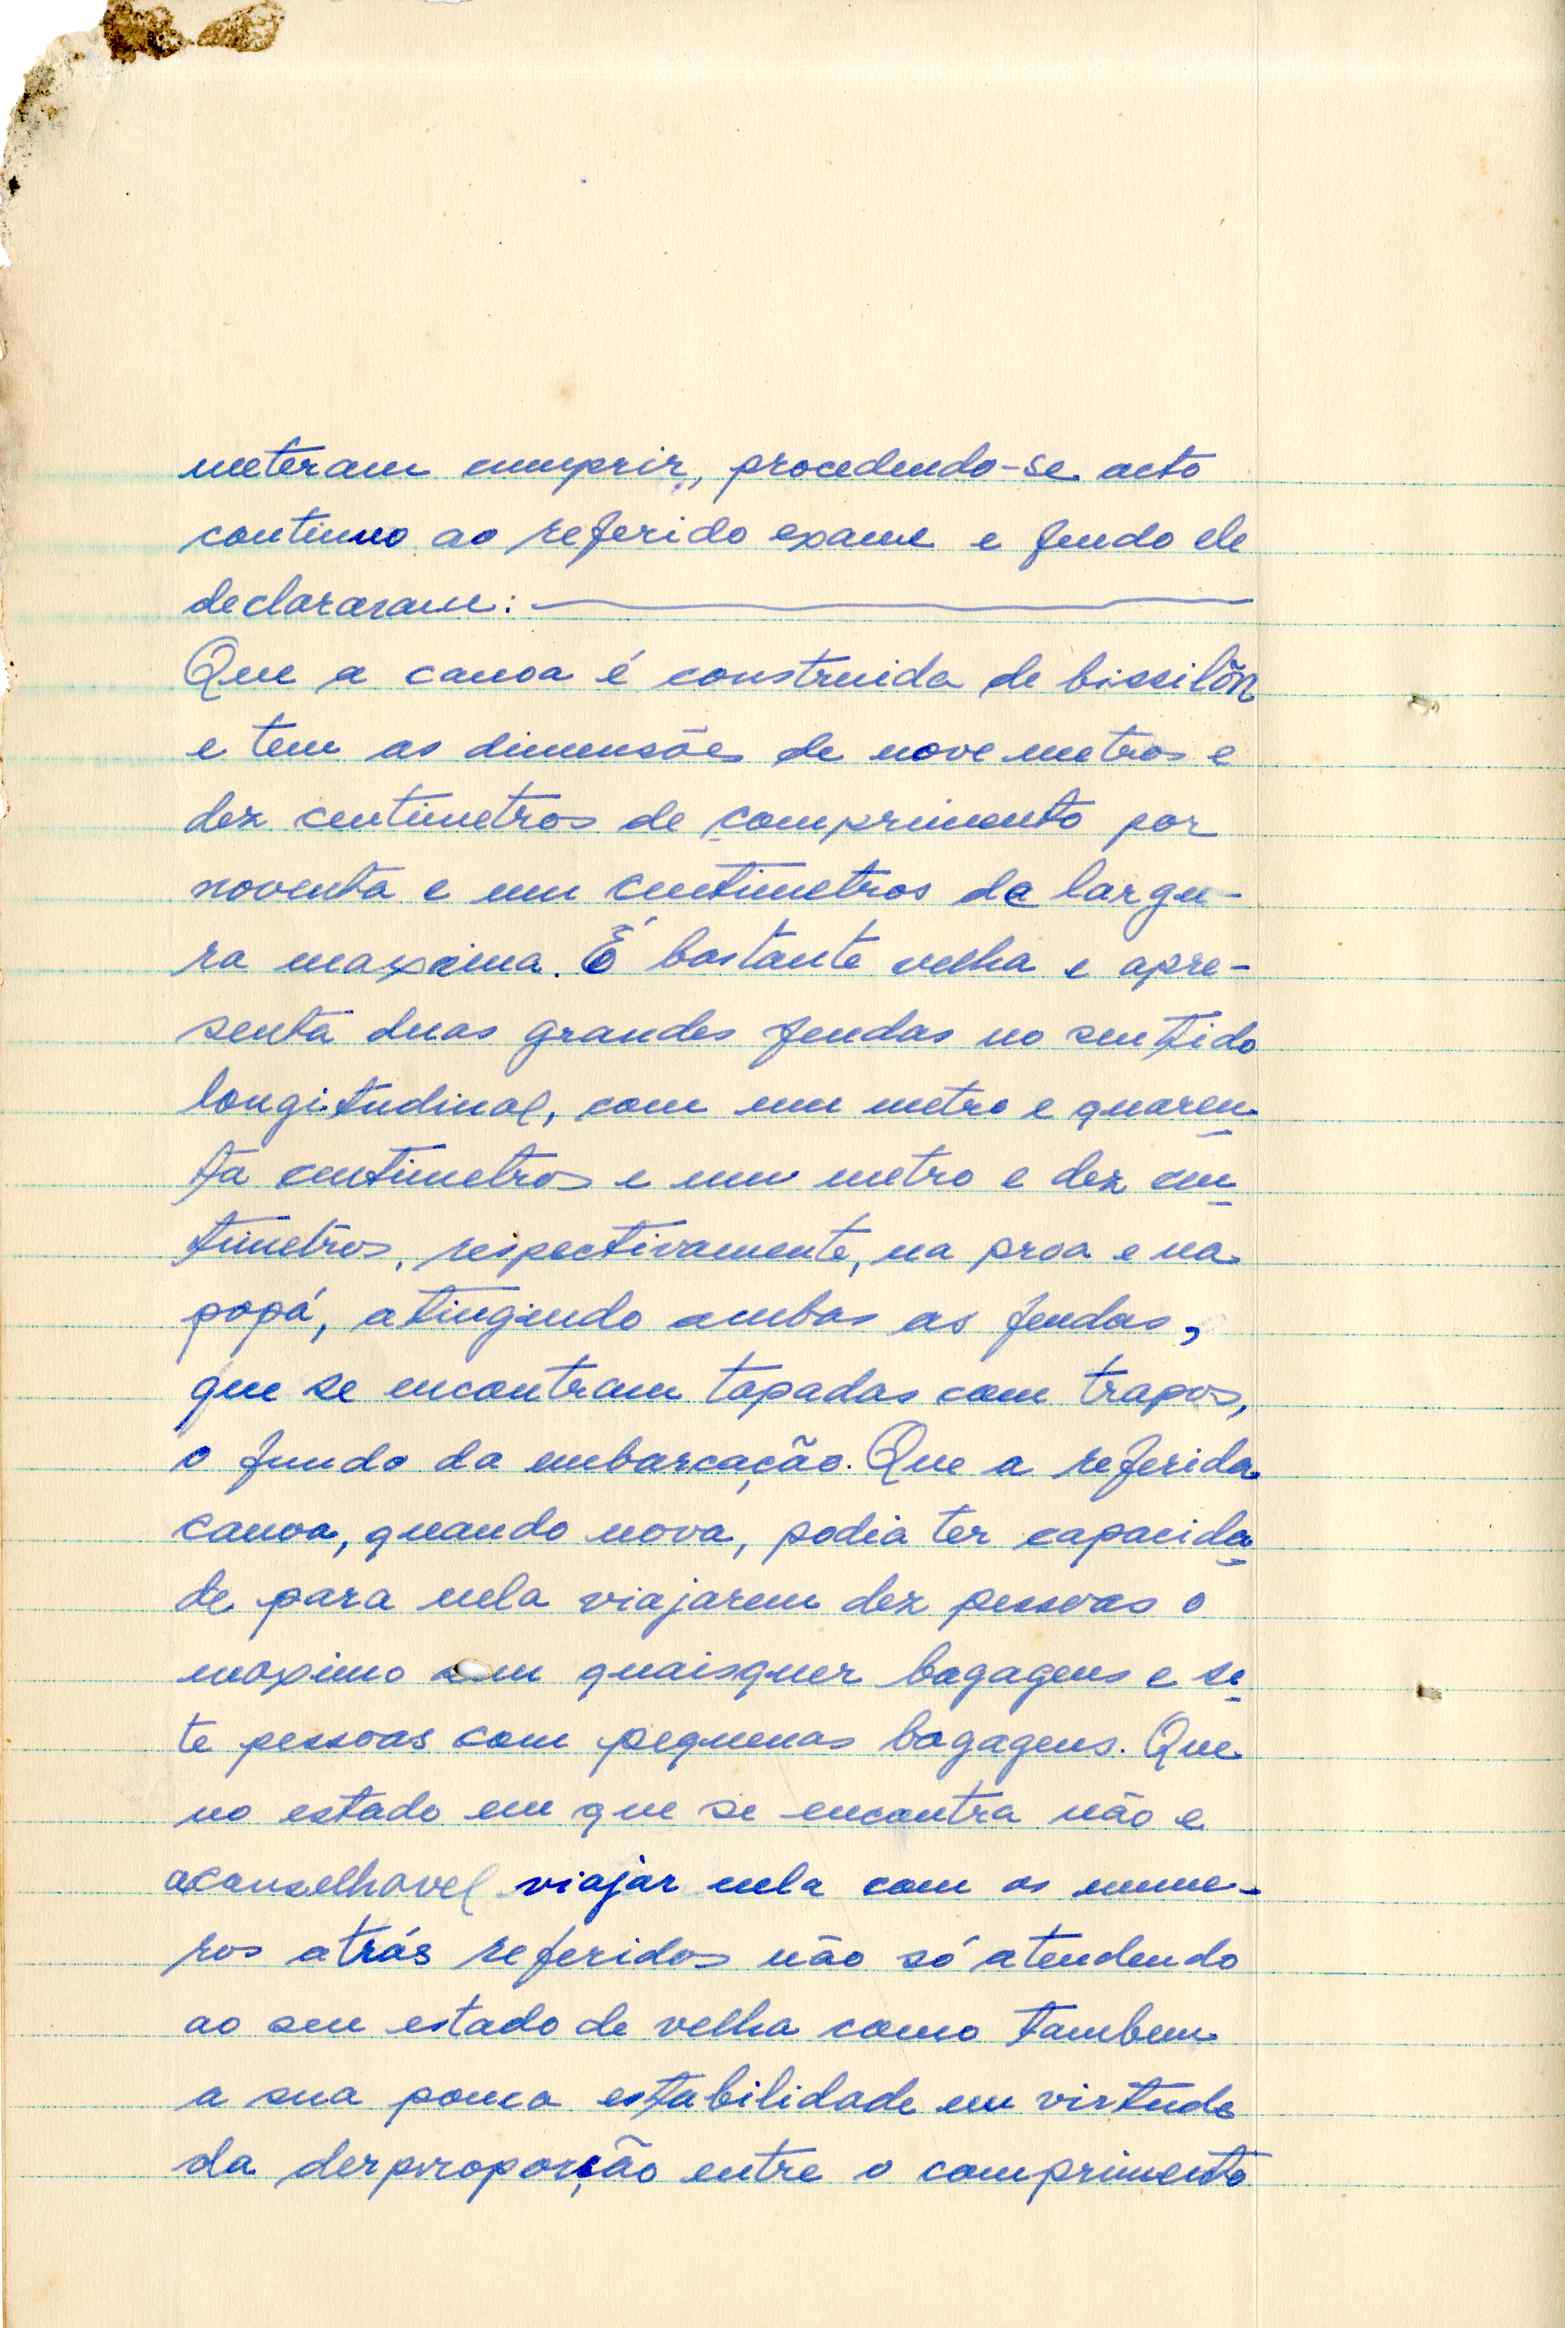 meteram cumprir, procedendo-se acto
continuo ao referido exame e findo ele
declararam:
Que a canoa é construida de bissilõn
e tem as dimensões de nove metros e
dez centimetros de comprimento por
noventa e um centimetros de largu-
ra maxima. É bastante velha e apre-
senta duas grandes fendas no sentido
longitudinal, com um metro e quaren-
ta centimetros e um metro e dez cen-
timetros, respectivamente, na proa e na
popá, atingindo ambas as fendas,
que se encontram tapadas com trapos,
o fundo da embarcação. Que a referida
canoa, quando nova, podia ter capacida-
de para nela viajarem dez pessoas o
maximo sem quaisquer bagagens e se-
te pessoas com pequenas bagagens. Que
no estado em que se encontra não e
aconselhavel viajar nela com os nume-
ros atrás referidos não só atendendo
ao seu estado de velha como tambem
a sua pouca estabilidade em virtude
da desproporção entre o comprimento